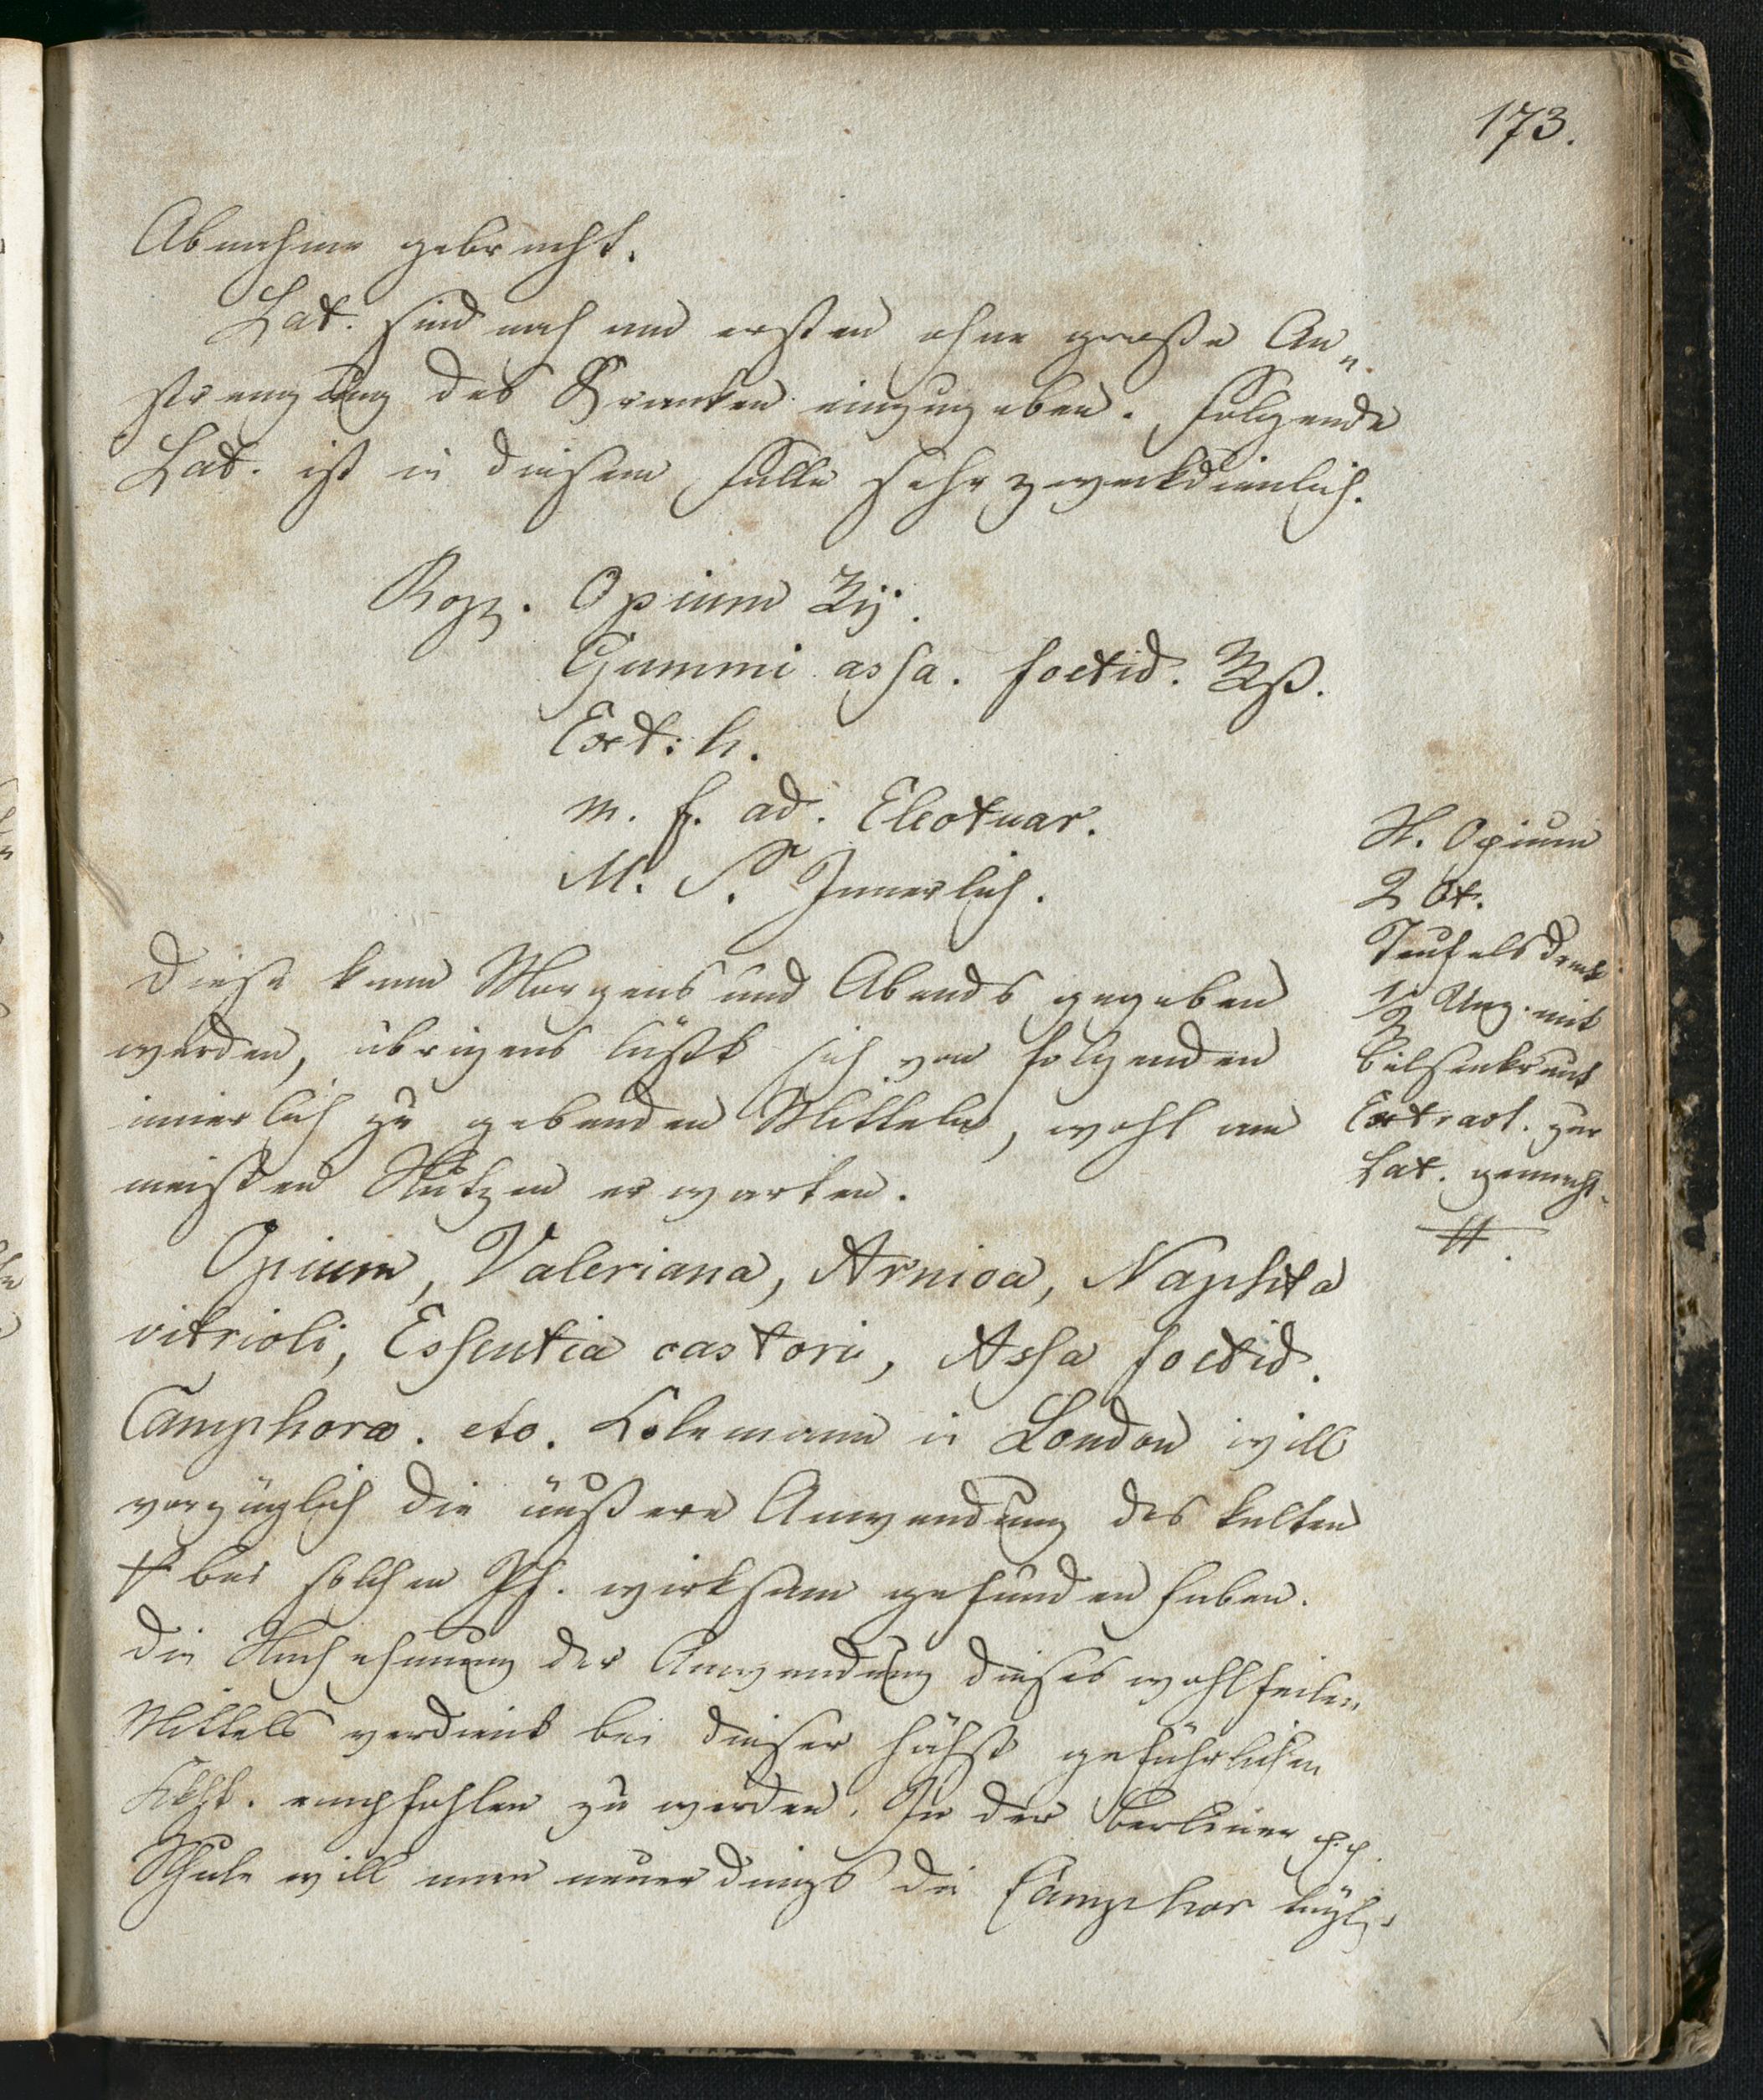 173.
Abnahme gebracht.
Lat. sind noch am ersten ohne große An„
strengung des Kranken einzugeben. Folgende
Lat. ist in diesem Falle sehr zweckdienlich.
Opium ʒij.
Gummi assa. foetid. ℥ß.
Ext: h.
m. f. ad. Electuar.
M. S. Innerlich.
diese kann Morgens und Abends gegeben
werden, übrigens läßt sich von folgenden
innerlich zu gebenden Mitteln, wohl am
meisten Nutzen erwarten.
Opium, Valeriana, Arnica, Naphta
vitrioli, Essentia castorii, Assa foetid.
Camphora. etc. Kolemann in London will
vorzüglich die äußere Anwendung des kalten
bei solchen Pf. wirksam gefunden haben.
die Nachahmung der Anwendung dieses wohlfeilen
Mittels verdient bei dieser höchst gefährlichen
Kkht. empfohlen zu werden. In der Berliner
Schule will man neuerdings die Camphor
N. Opium
2 Qt.
Teufelsdreck
1/2 Unz. mit
Bilsenkraut
Extract. zur
Lat. gemacht.
#.